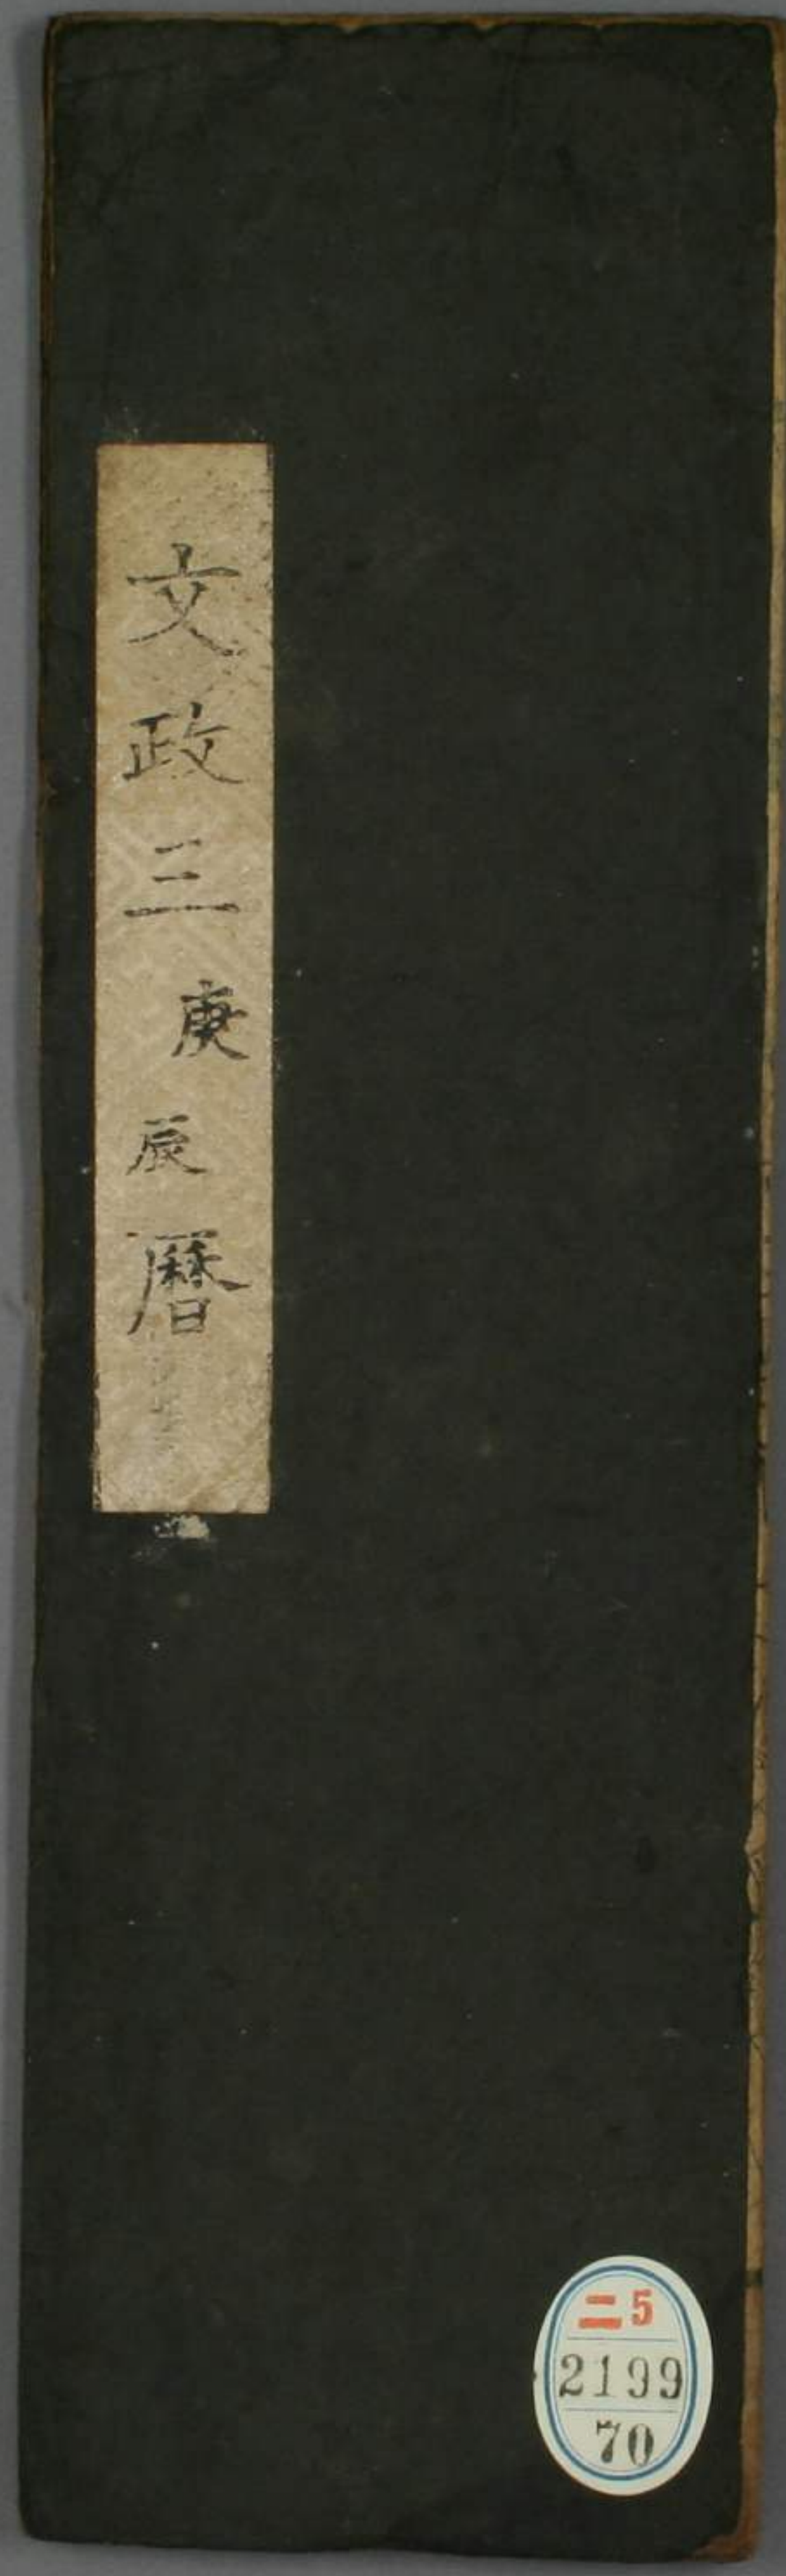 文政三庚辰暦
二5
2199
70